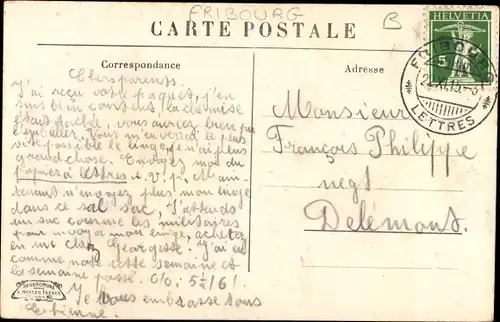 FRIBOURG
B
CARTE POSTALE
HELVETIA
5
FRIBOURG
LETTRES
Correspondance
Adresse
Chers parents.
J'ai reçu votre paquet, j'en
suis bien content, la chemise
étant sèche, vous auriez bien pu
l'emballer. Vous m'enverrez le plus
vite possible le linge, je n'ai plus
grand chose. Envoyez moi du
papier à lettres s. v. p. Main-
tenant n'envoyez plus mon linge
dans ce sal sac, J'attends
un sac comme les militaires
pour envoyer mon linge, achetez
en un chez Georgette. J'ai eu
comme note cette semaine et
la semaine passé. 6/6, 5½/6!
Je vous embrasse tous
Etienne.
Monsieur
François Philippe
negt
Delémont.